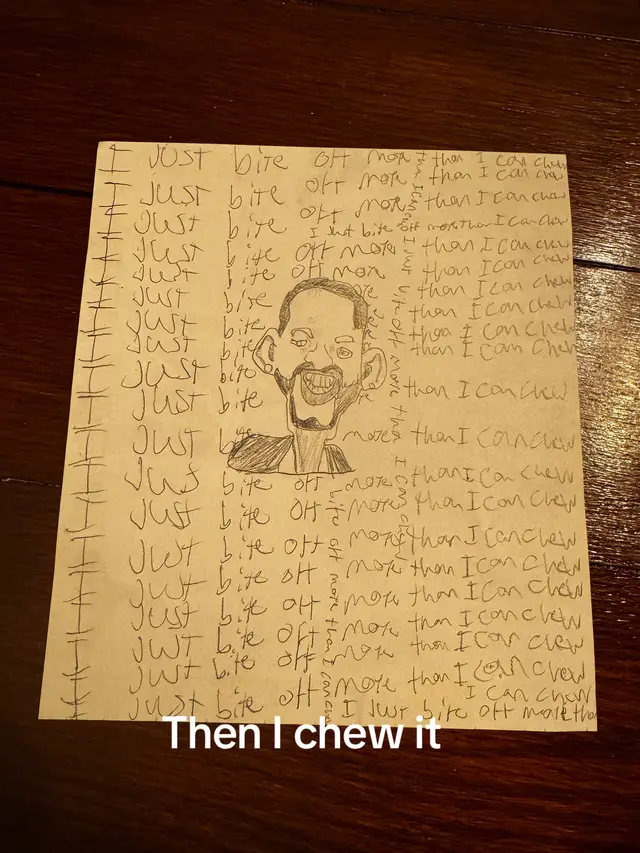 I JUST bite off more than I can chew
I JUST bite off more than I can chew
I JUST bite off more than I can chew
I Just bite off more than I can chew
I JUST bite off more than I can chew
I JUST bite off more than I can chew
I JUST bite than I can chew
I JUST bite than I can chew
I JUST bite than I can chew
I JUST bite than I can chew
I JUST bite than I can chew
I JUST bite more than I can chew
I JUST bite off more than I can chew
I JUST bite off more than I can chew
I JUST bite off more than I can chew
I JUST bite off more than I can chew
I JUST bite off more than I can chew
I JUST bite off more than I can chew
I JUST bite off more than I can chew
I JUST bite off more than I can chew
I can chew
I JUST bite off more than
than I can chew I JUST bite off more than I can chew
bite off more than I can chew
Then I chew it